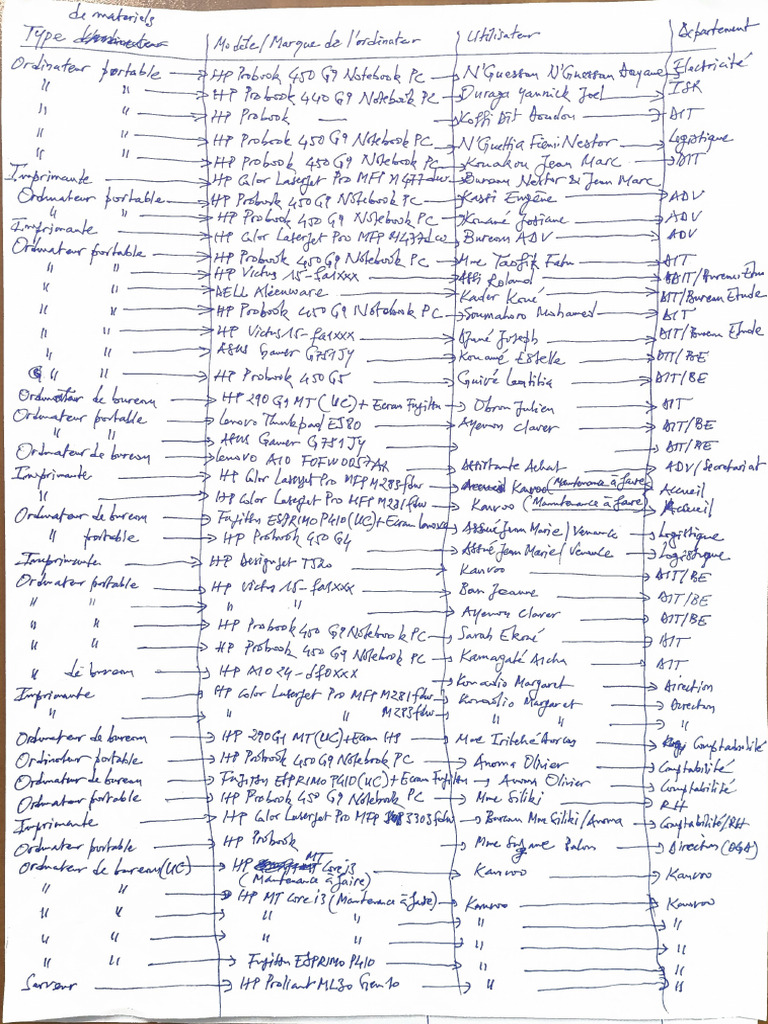 de materiels
Type Modèle/Marque de l'ordinateur Utilisateur Département
Ordinateur portable → HP Probook 450 G9 Notebook PC → N'Guessan N'Guessan → Electricité
" " → HP Probook 440 G9 Notebook PC → Yannick Joel → ISR
" " → HP Probook — → Koffi Dit Doudou → DIT
" " → HP Probook 450 G9 Notebook PC → N'Guettia Nestor → Logistique
" " → HP Probook 450 G9 Notebook PC → Kouakou Jean Marc → DIT
Imprimante → HP Color Laserjet Pro MFP M477 fdw → Bureau Nestor & Jean Marc
Ordinateur portable → HP Probook 450 G9 Notebook PC → Kassi Eugène → ADV
" " → HP Probook 450 G9 Notebook PC → Kouamé Josiane → ADV
Imprimante → HP Color Laserjet Pro MFP → Bureau ADV → ADV
Ordinateur portable → HP Probook 450 G9 Notebook PC → Mme → DIT
" " → HP Victus 15-fa1xxx → Roland → DIT/Bureau Etude
" " → DELL Alienware → Kader Koné → DIT/Bureau Etude
" " → HP Probook 450 G9 Notebook PC → Soumahoro Mohamed → DIT
" " → HP Victus 15-fa1xxx → Joseph → DIT/Bureau Etude
" " → ASUS Gamer G751JY → Kouamé Estelle → DIT/BE
" " → HP Probook 450 G5 → Laetitia → DIT/BE
Ordinateur de bureau → HP 290 G1 MT (UC) + Ecran Fujitsu → Julien → DIT
Ordinateur portable → Lenovo Thinkpad → Ayemou Claver → DIT/BE
" " → ASUS Gamer G751JY → → DIT/BE
Ordinateur de bureau → Lenovo A10 → Assistante Achat → ADV/Secretariat
Imprimante → HP Color Laserjet Pro MFP M283fdw → Kanvoo (Maintenance à faire) → Accueil
" → HP Color Laserjet Pro MFP M281fdw → Kanvoo (Maintenance à faire) → Accueil
Ordinateur de bureau → Fujitsu ESPRIMO P410 (UC) + Ecran Lenovo → Jean Marie/Venance → Logistique
" portable → HP Probook 450 G4 → Jean Marie/Venance → Logistique
Imprimante → HP Designjet T520 → Kanvoo → DIT/BE
Ordinateur portable → HP Victus 15-fa1xxx → Jeanne → DIT/BE
" " → " " → Ayemou Claver → DIT/BE
" " → HP Probook 450 G9 Notebook PC → Sarah → DIT
" " → HP Probook 450 G9 Notebook PC → Kamagaté Aicha → DIT
" de bureau → HP AIO 24-df0xxx → Margaret → Direction
Imprimante → HP Color Laserjet Pro MFP M281fdw → Margaret → Direction
" " M283fdw → " " → "
Ordinateur de bureau → HP 290 G1 MT (UC) + Ecran HP → Mme → Comptabilité
Ordinateur portable → HP Probook 450 G9 Notebook PC → Anoma Olivier → Comptabilité
Ordinateur de bureau → Fujitsu ESPRIMO P410 (UC) + Ecran Fujitsu → Anoma Olivier → Comptabilité
Ordinateur portable → HP Probook 450 G9 Notebook PC → Mme Siliki → RH
Imprimante → HP Color Laserjet Pro MFP 3303fdw → Bureau Mme Siliki/Anoma → Comptabilité/RH
Ordinateur portable → HP Probook → Mme → Direction (DGA)
Ordinateur de bureau (UC) → HP MT Core i3 (Maintenance à faire) → Kanvoo → Kanvoo
" " → HP MT Core i3 (Maintenance à faire) → Kanvoo → Kanvoo
" " → " " → " → "
" " → " " → " → "
" " → Fujitsu ESPRIMO P410 → " → "
Serveur → HP Proliant ML30 Gen 10 → " → "